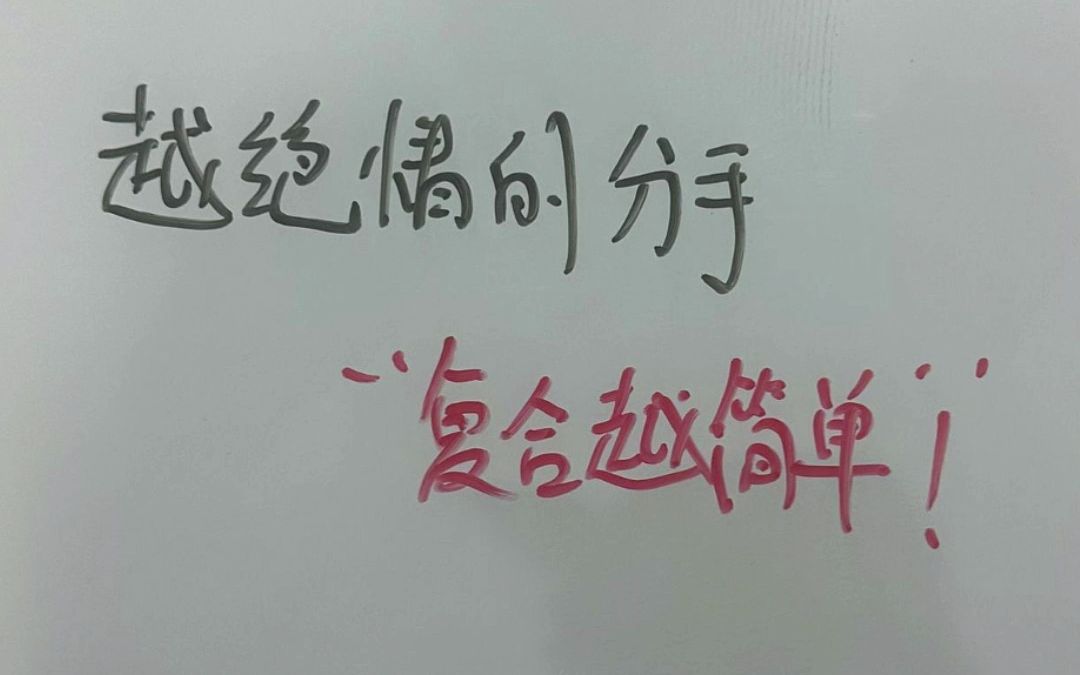 越绝情的分手
“复合越简单！”